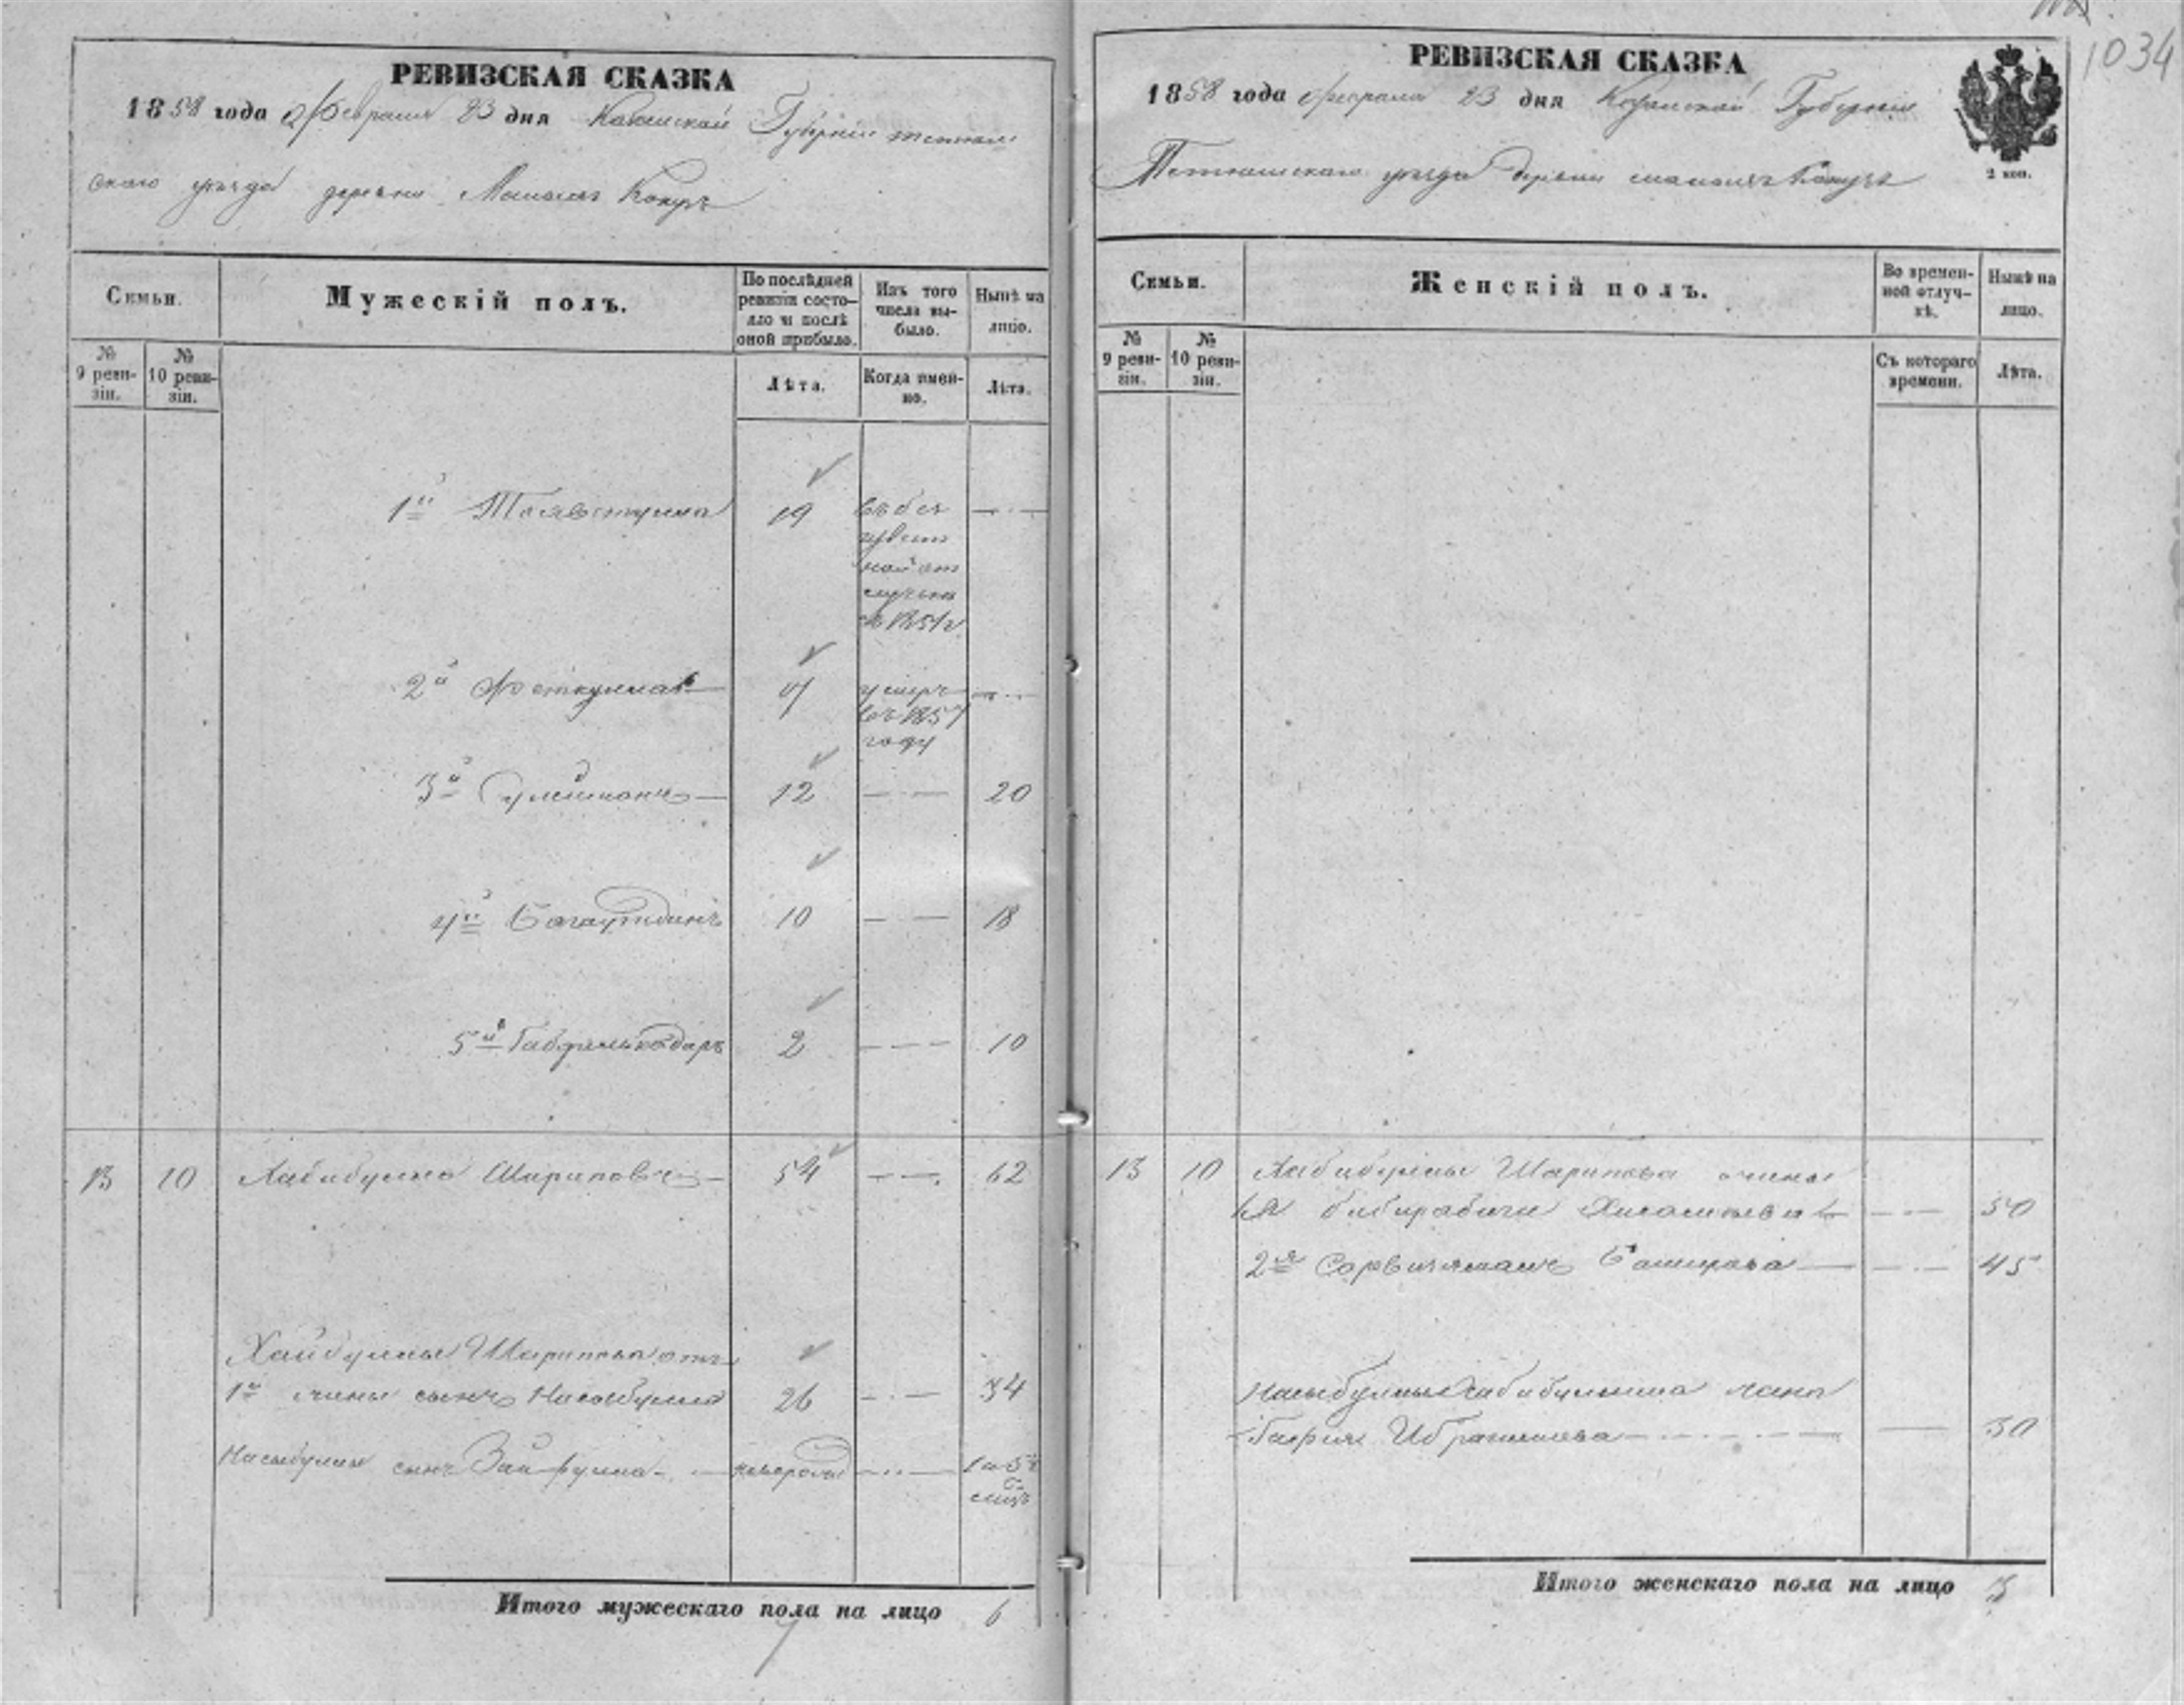 1034
РЕВИЗСКАЯ СКАЗКА
1858 года Февраля 23 дня Казанской Губерніи тетюш
скаго уезда деревни Мамалъ Кокузъ
Семьи.
Мужескій полъ.
По послѣдней ревизіи состояло и послѣ оной прибыло.
Изъ того числа выбыло.
Нынѣ на лицо.
№ 9 ревизіи.
№ 10 ревизіи.
Лѣта.
Когда именно.
Лѣта.
1й 19
въ без
извест
ной от
лучки
съ 1851г
2й Феткулла умеръ
въ 1857
году
3й Сулейманъ 12 20
4й Багаутдинъ 10 18
5й Габделькадыръ 2 10
13 10 Хабибулла Шариповъ 54 62
Хабибуллы Шарипова отъ
1й жены сынъ Насыбулла 26 34
Насыбуллы сынъ Зайфулла
Итого мужескаго пола на лицо 6
РЕВИЗСКАЯ СКАЗКА
1858 года февраля 23 дня Казанской Губерніи
Тетюшскаго уезда деревни мамалъ Кокузъ
2 коп.
Семьи.
Женскій полъ.
Во временной отлучкѣ.
Нынѣ на лицо.
№ 9 ревизіи.
№ 10 ревизіи.
Съ котораго времени.
Лѣта.
13 10 Хабибуллы Шарипова жены
1я бибирабига 50
2я Баширова 45
Насыбуллы Хабибуллина жена
Ибрагимова 30
Итого женскаго пола на лицо 3